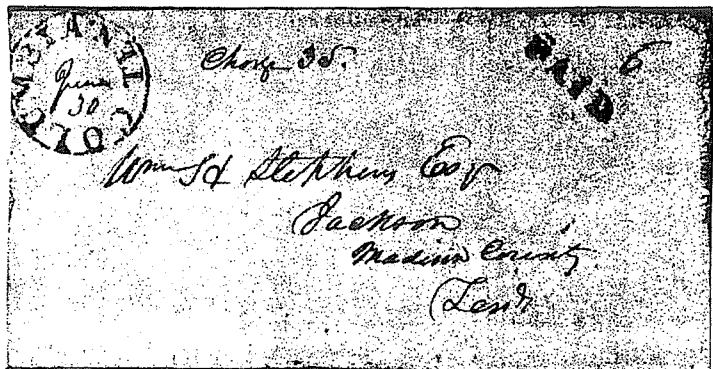 June
30
Charge 35.
PAID 6
Wm H Stephens Esqr
Jackson
Madison County
Tenn